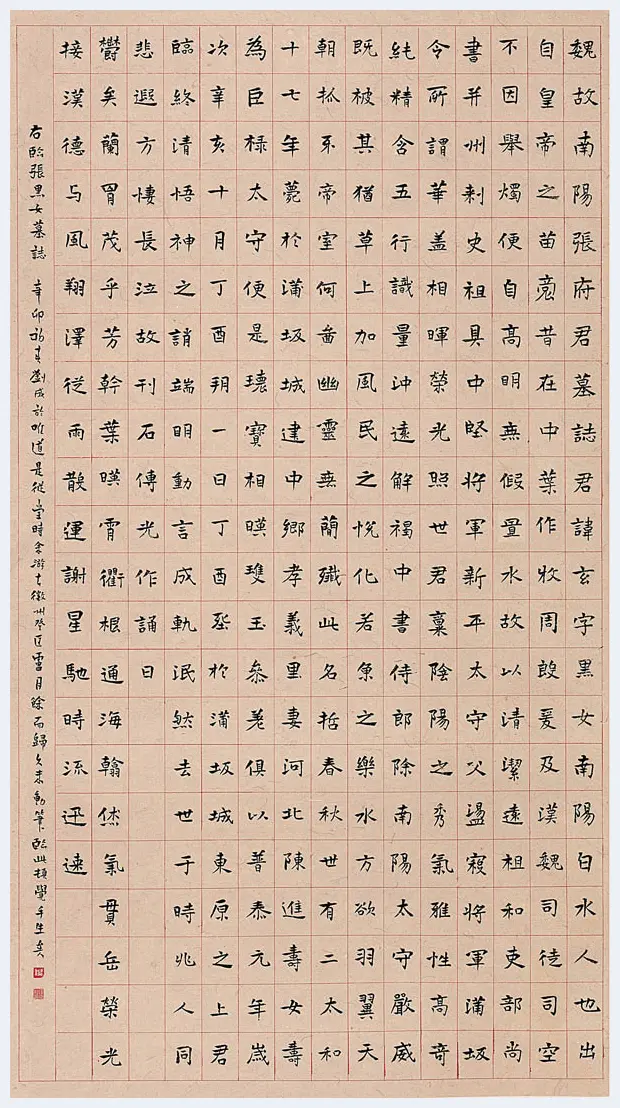 魏故南陽張府君墓誌君諱玄字黑女南陽白水人也出
自皇帝之苗裔昔在中葉作牧周殷爰及漢魏司徒司空
不因舉燭便自高明無假置水故以清潔遠祖和吏部尚
書并州刺史祖具中堅將軍新平太守父盪寇將軍蒲坂
令所謂華蓋相暉榮光照世君稟陰陽之秀氣雅性高奇
純精含五行識量沖遠解褐中書侍郎除南陽太守嚴威
既被其猶草上加風民之悅化若魚之樂水方欲羽翼天
朝抓牙帝室何啚幽靈無蕳殲此名哲春秋世有二太和
十七年薨於蒲坂城建中鄉孝義里妻河北陳進壽女壽
為巨祿太守便是瓌寶相暎瓊玉參差俱以普泰元年歲
次辛亥十月丁酉朔一日丁酉葬於蒲坂城東原之上君
臨終清悟神之誚端明動言成軌泯然去世于時兆人同
悲遐方悽長泣故刊石傳光作誦曰
鬱矣蘭冑茂乎芳幹葉暎霄衢根通海翰休氣貫岳榮光
接漢德与風翔澤從雨散運謝星馳時流迅速
右臨張黑女墓誌 辛卯初春劉成於唯道是從堂時余游古徽州月餘而歸久未動筆臨此頓覺手生矣